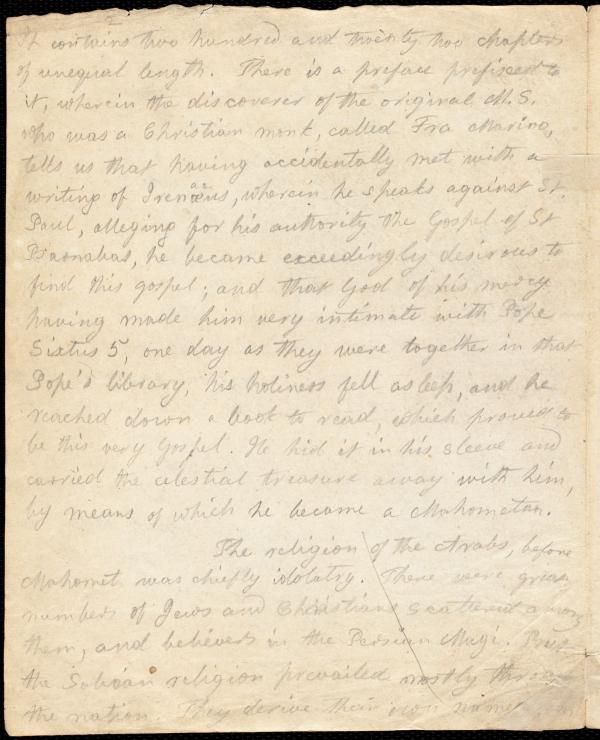 2
It contains two hundred and twenty two chapters
of unequal length. There is a preface prefixed to
it, wherein the discoverer of the original M.S.
who was a Christian monk, called Fra Marino,
tells us that having accidentally met with a
writing of Irenæus, wherein he speaks against St.
Paul, alleging for his authority the Gospel of St
Barnabas, he became exceedingly desirous to
find this gospel; and that God of his mercy
having made him very intimate with Pope
Sixtus 5, one day as they were together in that
Pope's library, his holiness fell asleep, and he
reached down a book to read, which proved to
be this very Gospel. He hid it in his sleeve and
carried the celestial treasure away with him,
by means of which he became a Mahometan.
The religion of the Arabs, before
Mahomet was chiefly idolatry. There were great
numbers of Jews and Christians scattered among
them, and believers in the Persian Magi. But
the Sabéan religion prevailed mostly through
the nation. They derive their own name